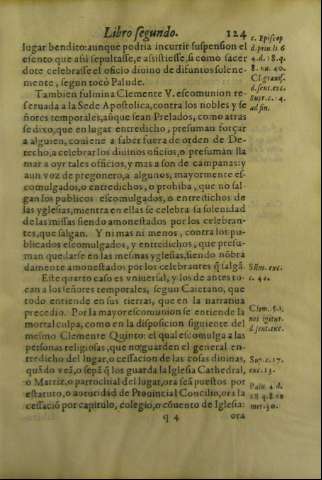 Libro segundo. 124
lugar bendito: aunque podria incurrir suspension el
esento que asi sepultasse, e assistiesse, si como sacer
dote celebrasse el oficio diuino de difuntos solene-
mente, segun tocò Palude.
Tambien fulmina Clemente V. escomunion re-
seruada a la Sede Apostolica, contra los nobles y se
ñores temporales, aũque sean Prelados, como atras
se dixo, que en lugar entredicho, presuman forçar
a alguien, cõuiene a saber fuera de orden de De-
recho, a celebrar los diuinos oficios, o presumã lla
mar a oyr tales officios, y mas a son de campanas: y
aun voz de pregonero, a algunos, mayormente es-
comulgados, o entredichos, o prohiba, que no sal-
gan los publicos escomulgados, o entredichos de
las yglesias, mientra en ellas se celebra la solenidad
de las missas siendo amonestados por los celebran-
tes, que salgan. Y ni mas ni menos, contra los pu-
blicados escomulgados, y entredichos, que presu-
man quedarse en las mesmas yglesias, siendo nõbra
damente amonestados por los celebrantes q̃ salgã.
Este quarto caso es vniuersal, y los de antes to-
can a los señores temporales, segun Caietano, que
todo entiende en sus tierras, que en la narratiua
precedio. Por la mayor escomunion se entiende la
mortal culpa, como en la disposicion siguiente del
mesmo Clemente Quinto: el qual escomulga a las
personas religiosas, que no guarden el general en-
tredicho del lugar, o cessacion de las cosas diuinas,
quãdo veã, o sepã q̃ los guarda la Iglesia Cathedral,
o Matriz, o parrochial del lugar, ora seã puestos por
estatuto, o autoridad de Prouincial Concilio, ora la
cessaciõ por capitulo, colegio, o cõuento de Iglesia:
q 4 ora
c. Episcop
4. d. 18. q.
8. cu. 40.
d. sent. exc.
Sum. exc.
c. 42.
Clem. S. 1.
d. sent. exc.
Su. c. 17.
exc. 13.
Palu. 4. d.
18. q. 8. cu